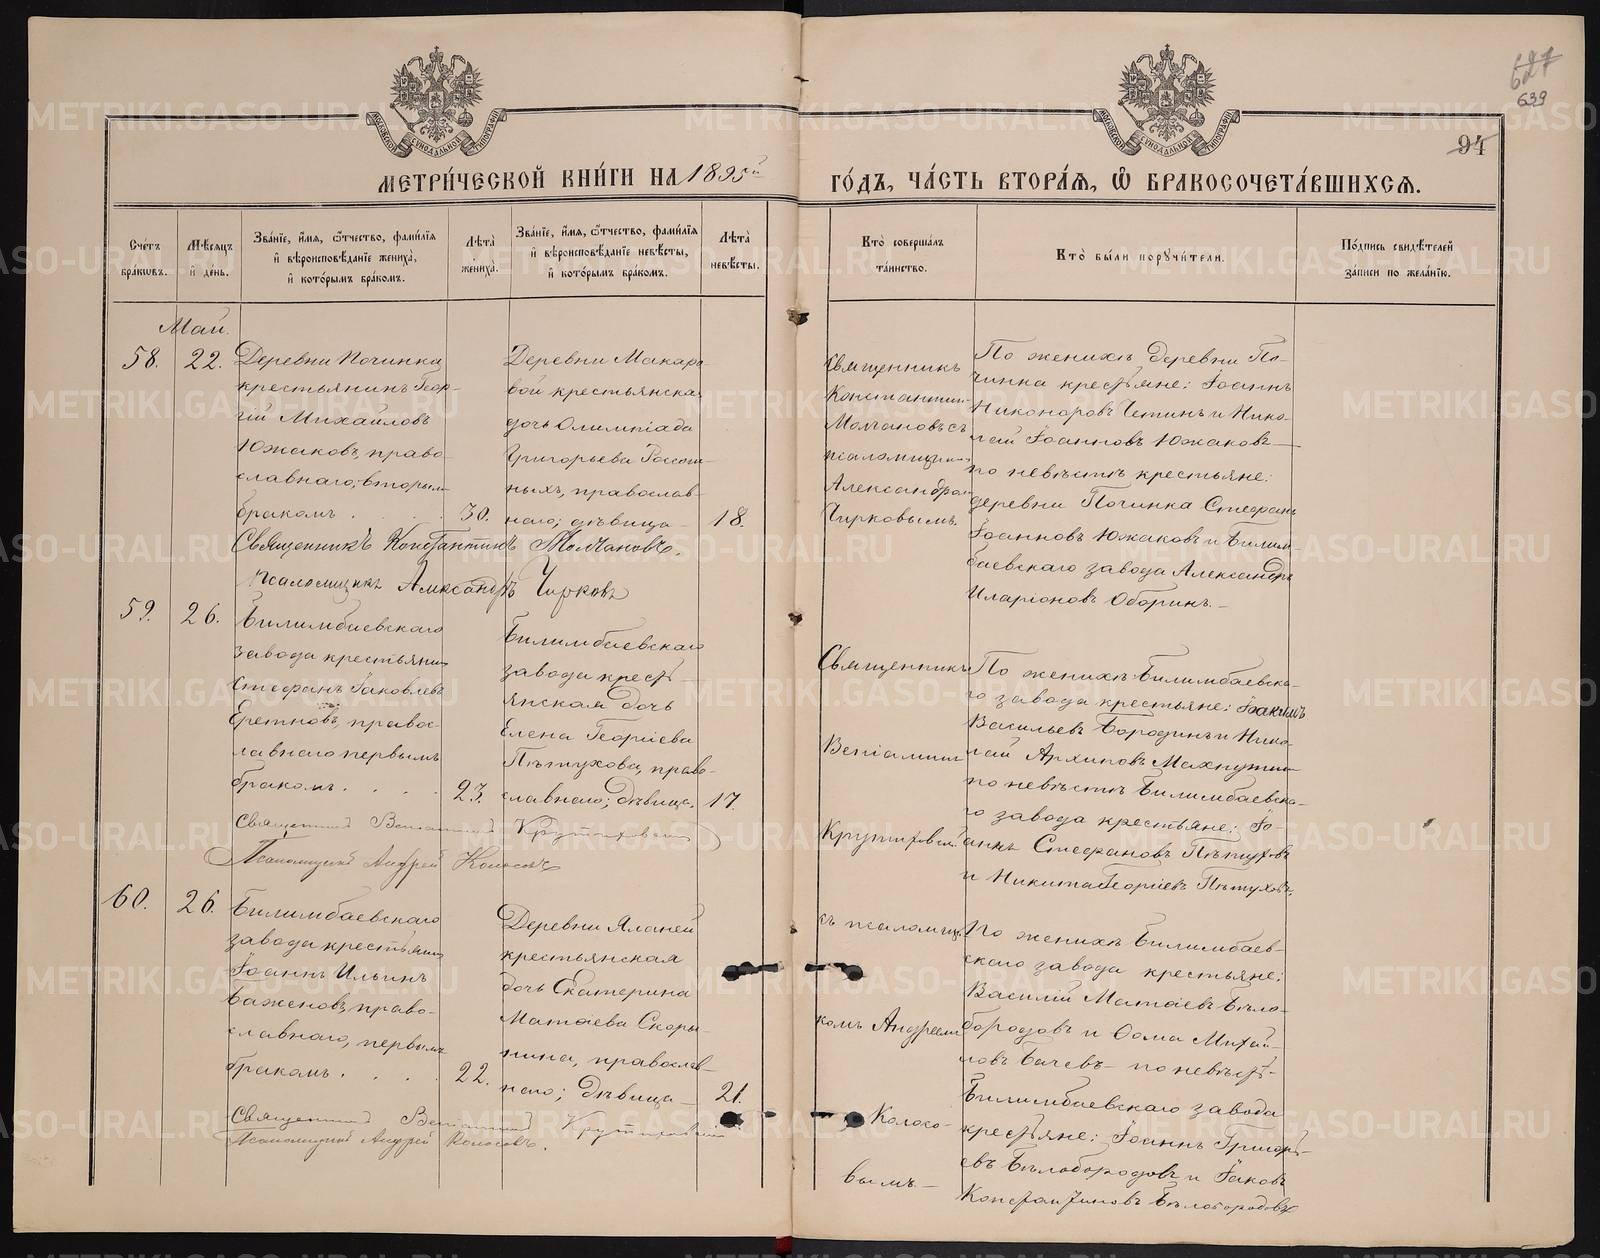 627
639
94
МОСКОВСКОЙ СѴНОДАЛЬНОЙ ТИПОГРАФІИ
МОСКОВСКОЙ СѴНОДАЛЬНОЙ ТИПОГРАФІИ
МЕТРИ́ЧЕСКОЙ КНИ́ГИ НА 1895й ГО́ДЪ, ЧА́СТЬ ВТОРА́Я, Ѽ БРАКОСОЧЕТА́ВШИХСЯ.
Сче́тъ бра́ковъ.
Мѣ́сяцъ и҆ де́нь.
Зва́нїе, и҆́мя, ѻ҆́тчество, фами́лїя и҆ вѣроисповѣ́данїе жениха̀, и҆ кото́рымъ бра́комъ.
Лѣ́та жениха̀.
Зва́нїе, и҆́мя, ѻ҆́тчество, фами́лїя и҆ вѣроисповѣ́данїе невѣ́сты, и҆ кото́рымъ бра́комъ.
Лѣ́та невѣ́сты.
Кто̀ соверша́лъ та́инство.
Кто̀ бы́ли порꙋчи́тели.
По́дпись свидѣ́телей за́писи по жела́нїю.
Май.
58.
22.
Деревни Починка
крестьянинъ Геор-
гій Михайловъ
Южаковъ, право-
славнаго, вторым
бракомъ . . . .
30.
Деревни Макаро-
вой крестьянская
дочь Олимпіада
Григорьева Россош-
ныхъ, православ-
наго; дѣвица
18.
Священникъ
Константинъ
Молчановъ съ
псаломщикомъ
Александромъ
Чирковымъ.
По женихѣ деревни По-
чинка крестьяне: Іоаннъ
Никоноровъ Четинъ и Нико-
лай Іоанновъ Южаковъ
по невѣстѣ крестьяне:
деревни Починка Стефанъ
Іоанновъ Южаковъ и Билим-
баевскаго завода Александръ
Иларіоновъ Оборинъ.-
Священникъ Константинъ Молчановъ.
Псаломщикъ Александръ Чирковъ
59.
26.
Билимбаевскаго
завода крестьянинъ
Стефанъ Іаковлевъ
Еретновъ, правос-
лавнаго первымъ
бракомъ . . . .
23.
Билимбаевскаго
завода крест-
янская дочь
Елена Георгіева
Пѣтухова, право-
славнаго; дѣвица.
17.
Священникъ
Веніаминъ
Крутиховскій
По женихѣ Билимбаевска-
го завода крестьяне: Іоакимъ
Васильевъ Бородинъ и Нико-
лай Архиповъ Махнутинъ
по невѣстѣ Билимбаевска-
го завода крестьяне: Іо-
аннъ Стефановъ Пѣтуховъ
и Никита Георгіевъ Пѣтуховъ.
Священникъ Веніаминъ Крутиховскій
Псаломщикъ Андрей Колосовъ
60.
26.
Билимбаевскаго
завода крестьянинъ
Іоаннъ Ильинъ
Баженовъ, право-
славнаго, первымъ
бракомъ . . . .
22.
Деревни Яланей
крестьянская
дочь Екатерина
Матѳіева Скоры-
нина, православ-
наго; дѣвица
21.
съ псаломщи-
комъ Андреемъ
Колосо-
вымъ
По женихѣ Билимбаев-
скаго завода крестьяне:
Василій Матѳіевъ Бѣло-
бородовъ и Ѳома Михай-
ловъ Бачевъ- по невѣстѣ-
Билимбаевскаго завода
крестьяне: Іоаннъ Григорь-
евъ Бѣлобородовъ и Іаковъ
Константиновъ Бѣлобородовъ
Священникъ Веніаминъ Крутиховскій
Псаломщикъ Андрей Колосовъ.
METRIKI.GASO-URAL.RU